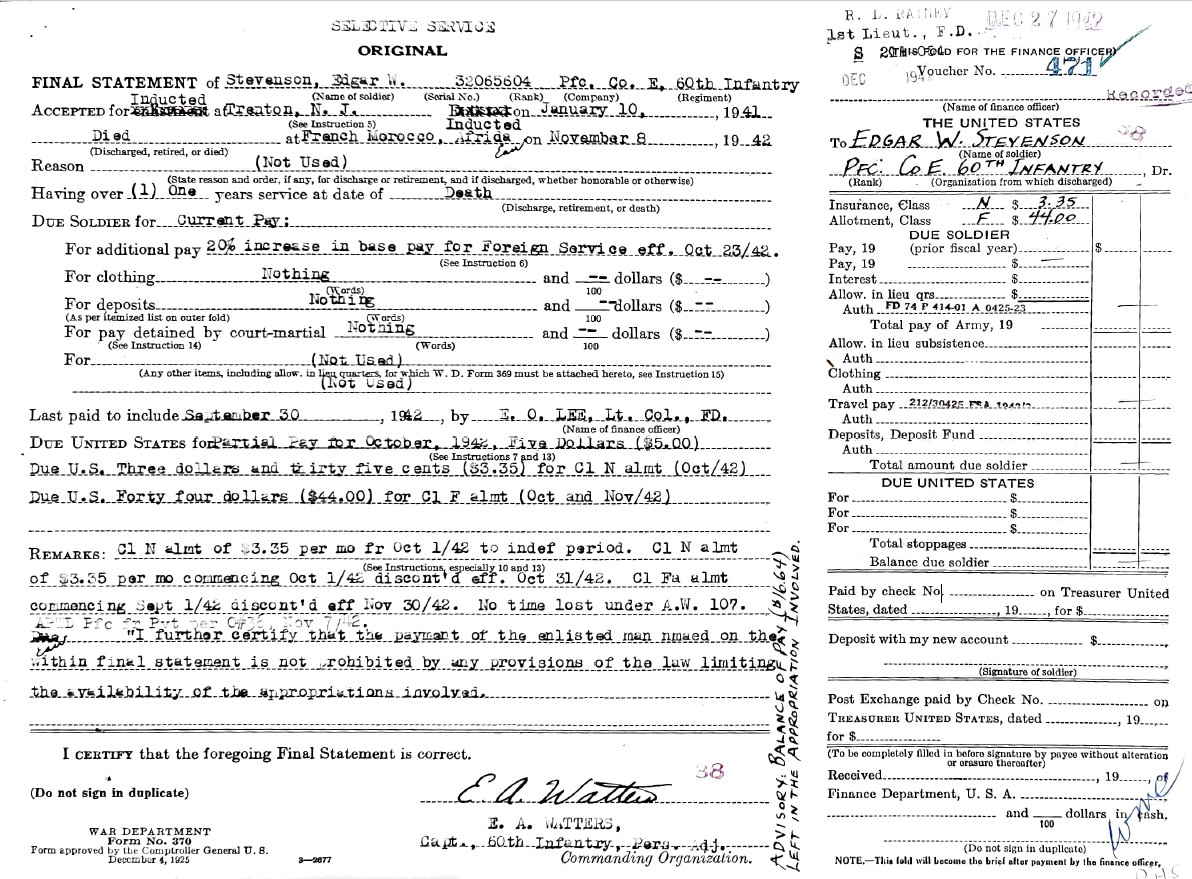 SELECTIVE SERVICE
ORIGINAL
FINAL STATEMENT of Stevenson, Edgar W. 32065604 Pfc. Co. E, 60th Infantry
(Name of soldier) (Serial No.) (Rank) (Company) (Regiment)
Inducted
ACCEPTED for at Trenton, N. J. on January 10, , 1941
(See Instruction 5) Inducted
Died at French Morocco, Africa on November 8 , 1942
(Discharged, retired, or died)
Reason (Not Used)
(State reason and order, if any, for discharge or retirement, and if discharged, whether honorable or otherwise)
Having over (1) One years service at date of Death
(Discharge, retirement, or death)
DUE SOLDIER for Current Pay:
For additional pay 20% increase in base pay for Foreign Service eff. Oct 23/42.
(See Instruction 6)
For clothing Nothing and -- dollars ($ -- )
(Words) 100
For deposits Nothing and -- dollars ($ -- )
(As per itemized list on outer fold) (Words) 100
For pay detained by court-martial Nothing and -- dollars ($ -- )
(See Instruction 14) (Words) 100
For (Not Used)
(Any other items, including allow. in lieu quarters, for which W. D. Form 369 must be attached hereto, see Instruction 15)
(Not Used)
Last paid to include September 30 , 1942 , by E. O. LEE, Lt. Col., FD.
(Name of finance officer)
DUE UNITED STATES for Partial Pay for October, 1942, Five Dollars ($5.00)
(See Instructions 7 and 13)
Due U.S. Three dollars and thirty five cents ($3.35) for Cl N almt (Oct/42)
Due U.S. Forty four dollars ($44.00) for Cl F almt (Oct and Nov/42)
REMARKS: Cl N almt of $3.35 per mo fr Oct 1/42 to indef period. Cl N almt
(See Instructions, especially 10 and 13)
of $3.35 per mo commencing Oct 1/42 discont'd eff. Oct 31/42. Cl Fa almt
commencing Sept 1/42 discont'd eff Nov 30/42. No time lost under A.W. 107.
Pfc fr Pvt per Nov 7/42.
"I further certify that the payment of the enlisted man nmaed on the
within final statement is not prohibited by any provisions of the law limiting
the availability of the appropriations involved.
I CERTIFY that the foregoing Final Statement is correct.
38
(Do not sign in duplicate)
E. A. Watters
E. A. WATTERS,
Capt., 60th Infantry, Pers. Adj.
Commanding Organization.
WAR DEPARTMENT
Form No. 370
Form approved by the Comptroller General U. S.
December 4, 1925
3—2677
ADVISORY: BALANCE OF PAY ($16.64)
LEFT IN THE APPROPRIATION INVOLVED.
R. L. RAINEY DEC 27 1942
1st Lieut., F.D.
FOR THE FINANCE OFFICER)
DEC 194 Voucher No. 471
Recorded
(Name of finance officer)
THE UNITED STATES
38
To EDGAR W. STEVENSON
(Name of soldier)
PFC. CO E. 60TH INFANTRY , Dr.
(Rank) (Organization from which discharged)
Insurance, Class N $ 3.35
Allotment, Class F $ 44.00
DUE SOLDIER
Pay, 19 (prior fiscal year) $
Pay, 19 $
Interest $
Allow. in lieu qrs. $
Auth FD 74 P 414-01 A 0425-23
Total pay of Army, 19
Allow. in lieu subsistence
Auth
Clothing
Auth
Travel pay 212/30425
Auth
Deposits, Deposit Fund
Auth
Total amount due soldier
DUE UNITED STATES
For $
For $
For $
Total stoppages
Balance due soldier
Paid by check No. on Treasurer United
States, dated , 19 , for $
Deposit with my new account $
(Signature of soldier)
Post Exchange paid by Check No. on
TREASURER UNITED STATES, dated , 19 ,
for $
(To be completely filled in before signature by payee without alteration
or erasure thereafter)
Received , 19 , of
Finance Department, U. S. A.
and dollars in cash.
100
(Do not sign in duplicate)
NOTE.—This fold will become the brief after payment by the finance officer.